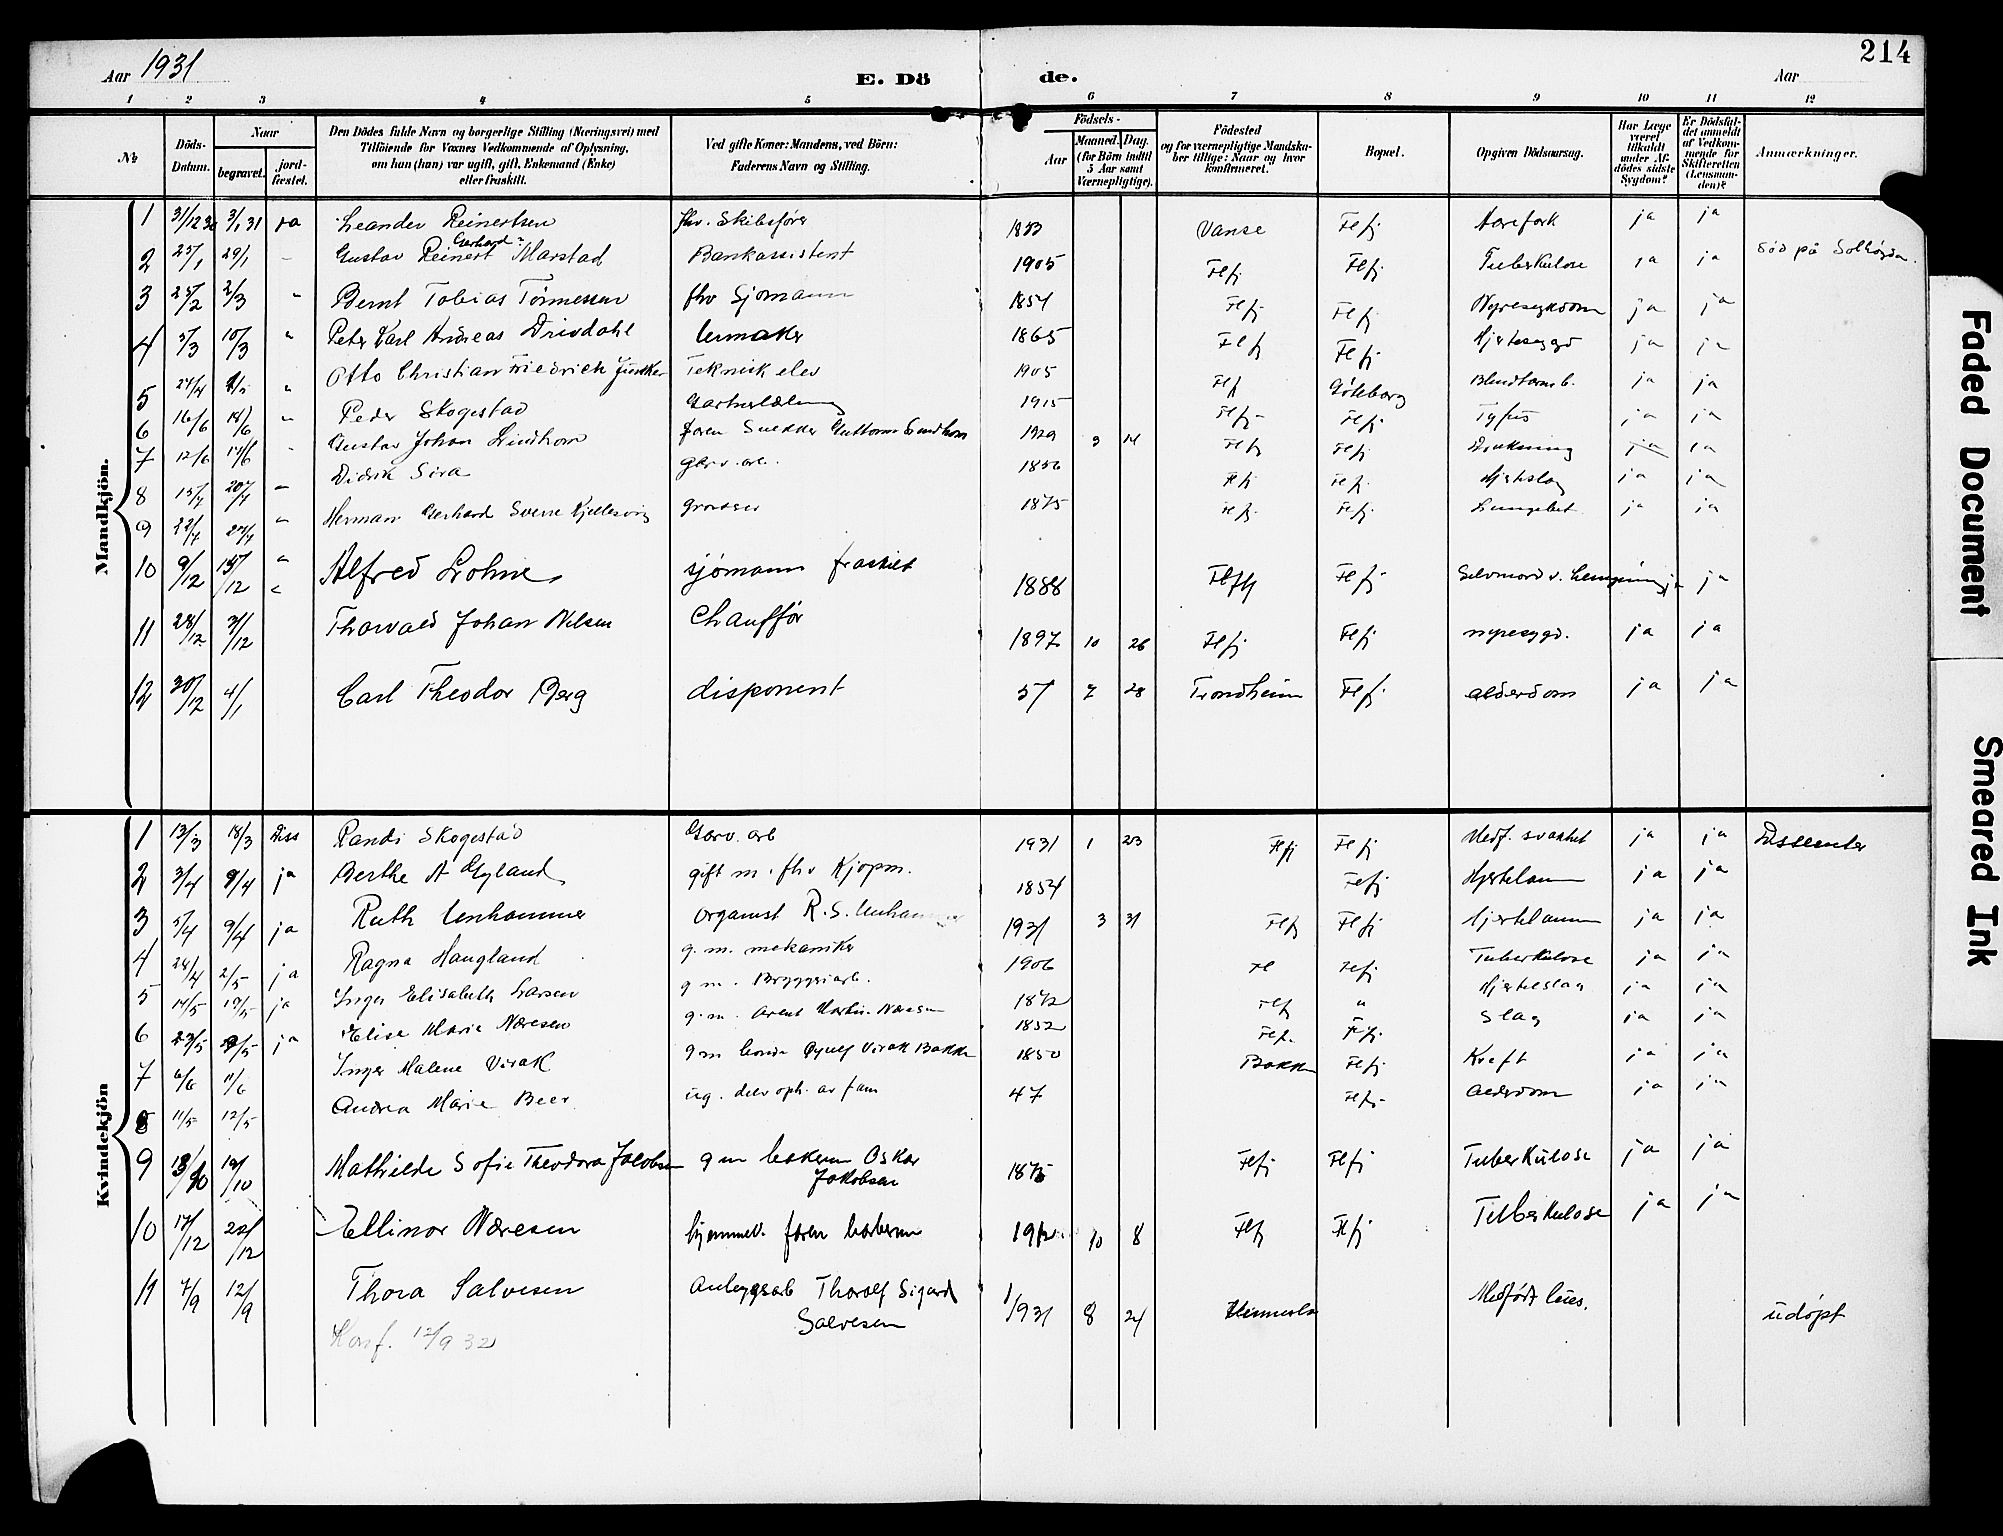 214
Aar 1931
E. Dö de.
Aar
1 2 3 4 5 6 7 8 9 10 11 12
№
Döds-Datum.
Naar
begravet.
jord-fæstet.
Den Dödes fulde Navn og borgerlige Stilling (Næringsvei) med
Tilföiende for Voxnes Vedkommende af Oplysning,
om han (hun) var ugift, gift, Enkemand (Enke)
eller fraskilt.
Ved gifte Koner: Mandens, ved Börn:
Faderens Navn og Stilling.
Födsels-
Aar
Maaned. Dag.
(for Börn indtil
5 Aar samt
Værnepligtige).
Födested
og for værnepligtige Mandska-
ber tillige: Naar og hvor
konfirmeret.
Bopæl.
Opgiven Dödsaarsag.
Har Læge
været
tilkaldt
under Af-
dödes sidste
Sygdom?
Er Dödsfal-
det anmeldt
af Vedkom-
mende for
Skifteretten
(Lensman-
den)?
Anmærkninger.
Mandkjön.
1 31/12 30 3/1 31 ja Leander Reinertsen fhv. Skibsfører 1853 Vanse Flfj ja ja
2 25/1 29/1 Gustav Reinert Gerhard Marstad Bankassistent 1905 Flfj Flfj Tuberkulose ja ja død på Solhøgda.
3 25/2 2/3 " Bernt Tobias Tønnessen fhv Sjømann 1854 Flfj Flfj Nyresygdom ja ja
4 5/3 10/3 " Peter Carl Andreas Drivdahl Urmaker 1865 Flfj Flfj Hjertesygd ja ja
5 24/4 " Otto Christian Friedrich Junker Teknisk elev 1905 Flfj Göteborg Blindtarmb. ja ja
6 16/6 18/6 " Peder Skogestad 1915 Flfj Flfj Tyfus ja ja
7 12/6 17/6 Gustav Johan Lindhom faren Snekker Guttorm Lindhom 1929 3 14 Flfj Flfj Drukning ja ja
8 Didrik Sira garv. arb. 1856 Flfj Flfj Hjerteslag ja ja
9 " Herman Gerhard Sverre Kjellesvig grosser 1875 Flfj Flfj Lungebet. ja ja
10 9/12 15/12 " Alfred Lohne sjømann fraskilt 1888 Flfj Flfj Selvmord v. hengning ja ja
11 28/12 31/12 Thorvald Johan Nilsen Chauffør 1897 10 26 Flfj Flfj nyresygd. ja ja
12 30/12 4/1 Carl Theodor Berg disponent 51 7 28 Trondheim Flfj alderdom ja ja
Kvindekjön
1 13/3 18/3 Diss Randi Skogestad Garv. arb 1931 1 23 Flfj Flfj Medf. svakhet ja ja Dissenter
2 3/4 9/4 ja Berthe A Gyland gift m. fhv Kjøpm. 1854 Flfj Hjertelam ja ja
3 5/4 9/4 ja Ruth Unhammer organist R. S. Unhammer 1931 3 31 Flfj Flfj hjertelam ja ja
4 28/4 2/5 ja Ragna Haugland g. m. mekaniker 1906 Fl Flfj Tuberkulose ja ja
5 14/5 19/5 ja Inger Elisabeth Larsen g. m. Bryggeriarb. 1872 Flfj " Hjerteslag ja ja
6 23/5 ja Elise Marie Næresen g. m. Arent Martin Næresen 1852 Flfj. Flfj. Slag ja ja
7 6/6 11/6 Inger Malene Virak gm bonde Virak Bakke 1850 Bakke Flfj Kreft ja ja
8 11/5 12/5 Andrea Marie Beer ug. delv oph. av fam 47 Flfj alderdom ja ja
9 19/10 Mathilde Sofie Theodora Jakobsen gm Oskar 1875 Flfj Flfj Tuberkulose ja ja
Jakobsen
10 17/12 22/12 Ellinor Næresen hjemmev. faren 1912 10 8 Flfj Flfj Tuberkulose ja ja
11 7/9 12/9 Thora Salvesen Anleggsarb Thorolf Sigurd 1931 8 24 Medfødt lues.
Salvesen udøpt
12/9 32
Faded Document
Smeared Ink